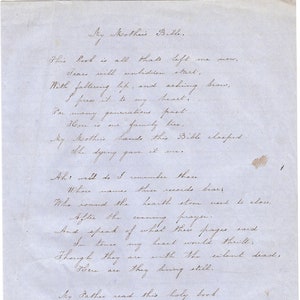 My Mothers Bible.
This Book is all thats left me now,
Tears will unbidden start,
With faltering lip, and aching brow,
I press it to my heart.
For many generations past
Here is our family tree
My Mothers hands this Bible clasped
She dying gave it me.
Ah! well do I remember those
Whose names these records bear,
Who round the hearth stone used to close
After the evening prayer.
And speak of what these pages said
In tones my heart would thrill,
Though they are with the silent dead,
Here are they living still.
My Father read this holy book